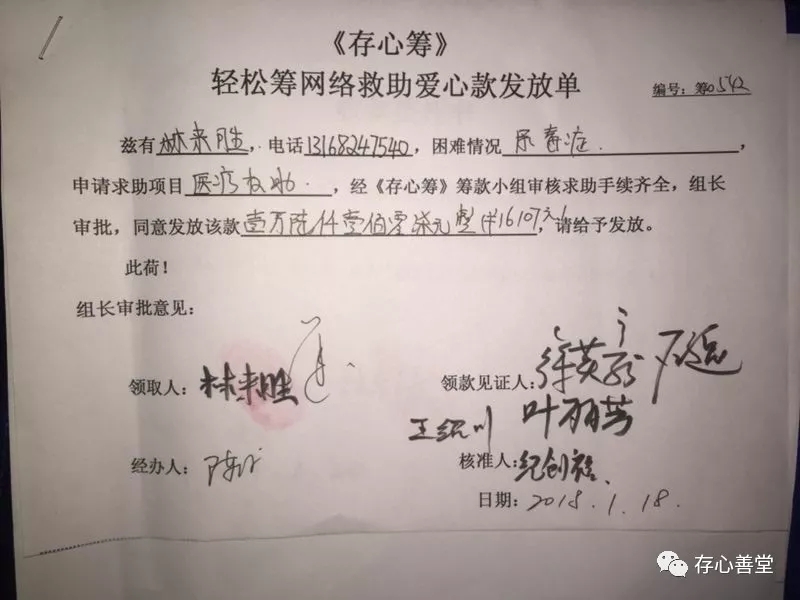 《存心筹》
轻松筹网络救助爱心款发放单
编号：筹0542
兹有林来胜，电话13168247540，困难情况尿毒症.，
申请求助项目医疗救助.，经《存心筹》筹款小组审核求助手续齐全，组长
审批，同意发放该款壹万陆仟壹佰零柒元整(￥16107元)，请给予发放。
此荷！
组长审批意见：
领取人：林来胜
领款见证人：徐英
王绍川 叶丽芳
经办人：陈
核准人：纪创裕
日期：2018.1.18.
存心善堂